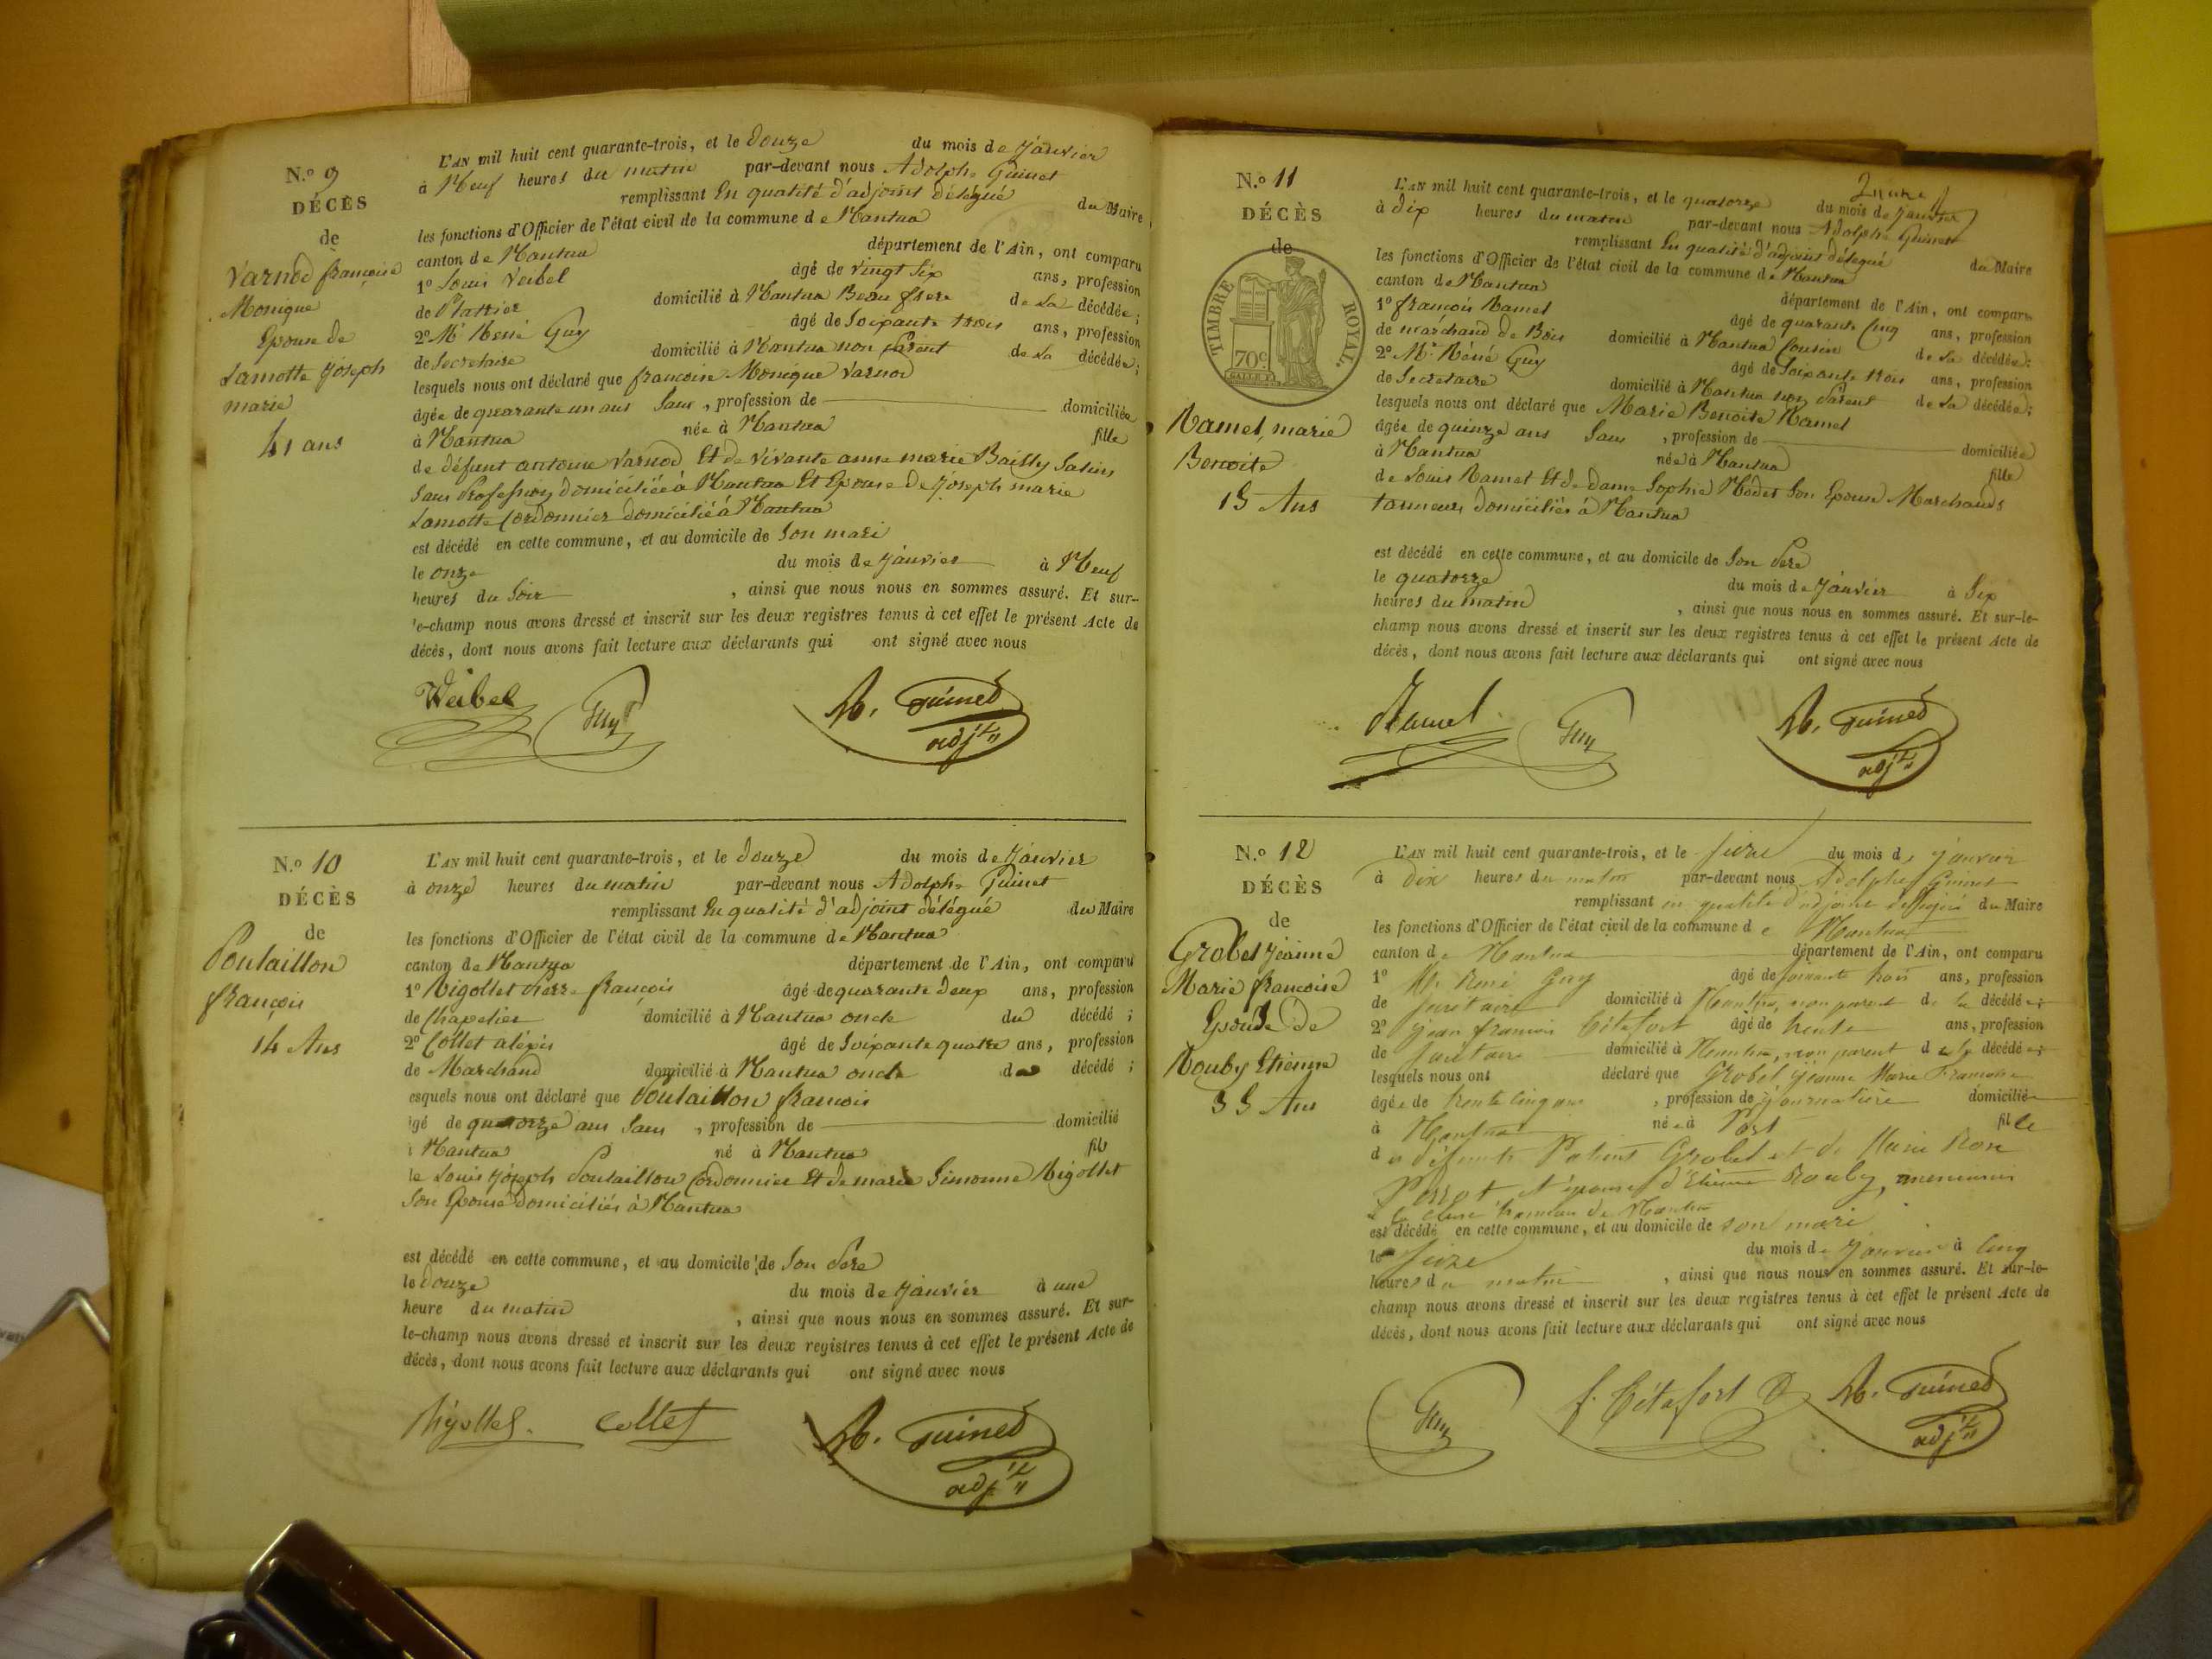 N.º 9
DÉCÈS
de
Varnod françoise
Monique
Epouse de
Lamotte Joseph
marie
41 ans
L'AN mil huit cent quarante-trois, et le douze du mois de Janvier
à Neuf heures du matin par-devant nous Adolphe Guinet
remplissant En qualité d'adjoint délégué du Maire
les fonctions d'Officier de l'état civil de la commune de Nantua
canton de Nantua département de l'Ain, ont comparu
1º Louis Veibel âgé de vingt Six ans, profession
de Platrier domicilié à Nantua Beau frere de La décédée;
2º Mr Réné Guy âgé de Soixante trois ans, profession
de Secretaire domicilié à Nantua non Parent de La décédée;
lesquels nous ont déclaré que françoise Monique Varnod
âgée de quarante un ans Sans, profession de domiciliée
à Nantua née à Nantua fille
de défunt antoine Varnod Et de vivante anne marie Bailly Salins
Sans Profession domiciliée à Nantua Et Epouse de Joseph marie
Lamotte Cordonnier domicilié à Nantua
est décédé en cette commune, et au domicile de Son mari
le onze du mois de Janvier à Neuf
heures du Soir, ainsi que nous nous en sommes assuré. Et sur-
le-champ nous avons dressé et inscrit sur les deux registres tenus à cet effet le présent Acte de
décès, dont nous avons fait lecture aux déclarants qui ont signé avec nous
Weibel Guy A. Guinet
adjt
N.º 10
DÉCÈS
de
Poulaillon
françois
14 Ans
L'AN mil huit cent quarante-trois, et le douze du mois de Janvier
à onze heures du matin par-devant nous Adolphe Guinet
remplissant En qualité d'adjoint délégué du Maire
les fonctions d'Officier de l'état civil de la commune de Nantua
canton de Nantua département de l'Ain, ont comparu
1º Rigollet Pierre françois âgé de quarante deux ans, profession
de Chapelier domicilié à Nantua oncle du décédé;
2º Collet alexis âgé de Soixante quatre ans, profession
de Marchand domicilié à Nantua oncle du décédé;
esquels nous ont déclaré que Poulaillon françois
âgé de quatorze ans Sans, profession de domicilié
à Nantua né à Nantua fils
de Louis Joseph Poulaillon Cordonnier Et de marie Simonne Rigollet
Son Epouse domiciliés à Nantua
est décédé en cette commune, et au domicile de Son Père
le douze du mois de Janvier à une
heure du matin, ainsi que nous nous en sommes assuré. Et sur-
le-champ nous avons dressé et inscrit sur les deux registres tenus à cet effet le présent Acte de
décès, dont nous avons fait lecture aux déclarants qui ont signé avec nous
Rigollet. Collet A. Guinet
adjt
N.º 11
DÉCÈS
de
TIMBRE ROYAL.
70 c.
Ramel, marie
Benoite
15 Ans
L'AN mil huit cent quarante-trois, et le quatorze du mois de Janvier
à dix heures du matin par-devant nous Adolphe Guinet
remplissant En qualité d'adjoint délégué du Maire
les fonctions d'Officier de l'état civil de la commune de Nantua
canton de Nantua département de l'Ain, ont comparu
1º françois Ramel âgé de quarante Cinq ans, profession
de marchand de Bois domicilié à Nantua Cousin de La décédée;
2º Mr Réné Guy âgé de Soixante trois ans, profession
de Secretaire domicilié à Nantua non Parent de La décédée;
lesquels nous ont déclaré que Marie Benoite Ramel
âgée de quinze ans Sans, profession de domiciliée
à Nantua née à Nantua fille
de Louis Ramel Et de Dame Sophie Son Epouse Marchands
tanneurs domiciliés à Nantua
est décédé en cette commune, et au domicile de Son Père
le quatorze du mois de Janvier à Six
heures du matin, ainsi que nous nous en sommes assuré. Et sur-le-
champ nous avons dressé et inscrit sur les deux registres tenus à cet effet le présent Acte de
décès, dont nous avons fait lecture aux déclarants qui ont signé avec nous
Ramel Guy A. Guinet
adjt
N.º 12
DÉCÈS
de
Grobet Jeanne
Marie françoise
Epouse de
Rouby Etienne
35 Ans
L'AN mil huit cent quarante-trois, et le seize du mois de janvier
à Dix heures du matin par-devant nous Adolphe Guinet
remplissant en qualité d'adjoint délégué du Maire
les fonctions d'Officier de l'état civil de la commune de Nantua
canton de Nantua département de l'Ain, ont comparu
1º Mr René Guy âgé de soixante trois ans, profession
de secrétaire domicilié à Nantua, non parent de la décédée;
2º Jean francois Cétafort âgé de trente ans, profession
de secrétaire domicilié à Nantua, non parent de la décédée;
lesquels nous ont déclaré que Grobet Jeanne Marie Francoise
âgée de trente cinq ans, profession de journalière domiciliée
à Nantua née à Port fille
des défunts Grobet et de Marie Rose
Perrot et épouse d'Etienne Rouby,
hameau de Nantua
est décédé en cette commune, et au domicile de son mari
le seize du mois de Janvier à cinq
heures du matin, ainsi que nous nous en sommes assuré. Et sur-le-
champ nous avons dressé et inscrit sur les deux registres tenus à cet effet le présent Acte de
décès, dont nous avons fait lecture aux déclarants qui ont signé avec nous
Guy f. Cétafort A. Guinet
adjt